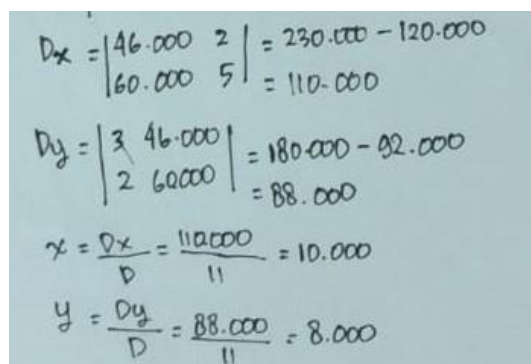 Dx = |46.000 2| = 230.000 - 120.000
|60.000 5| = 110.000
Dy = |3 46.000| = 180.000 - 92.000
|2 60000| = 88.000
x = Dx/D = 110.000/11 = 10.000
y = Dy/D = 88.000/11 = 8.000